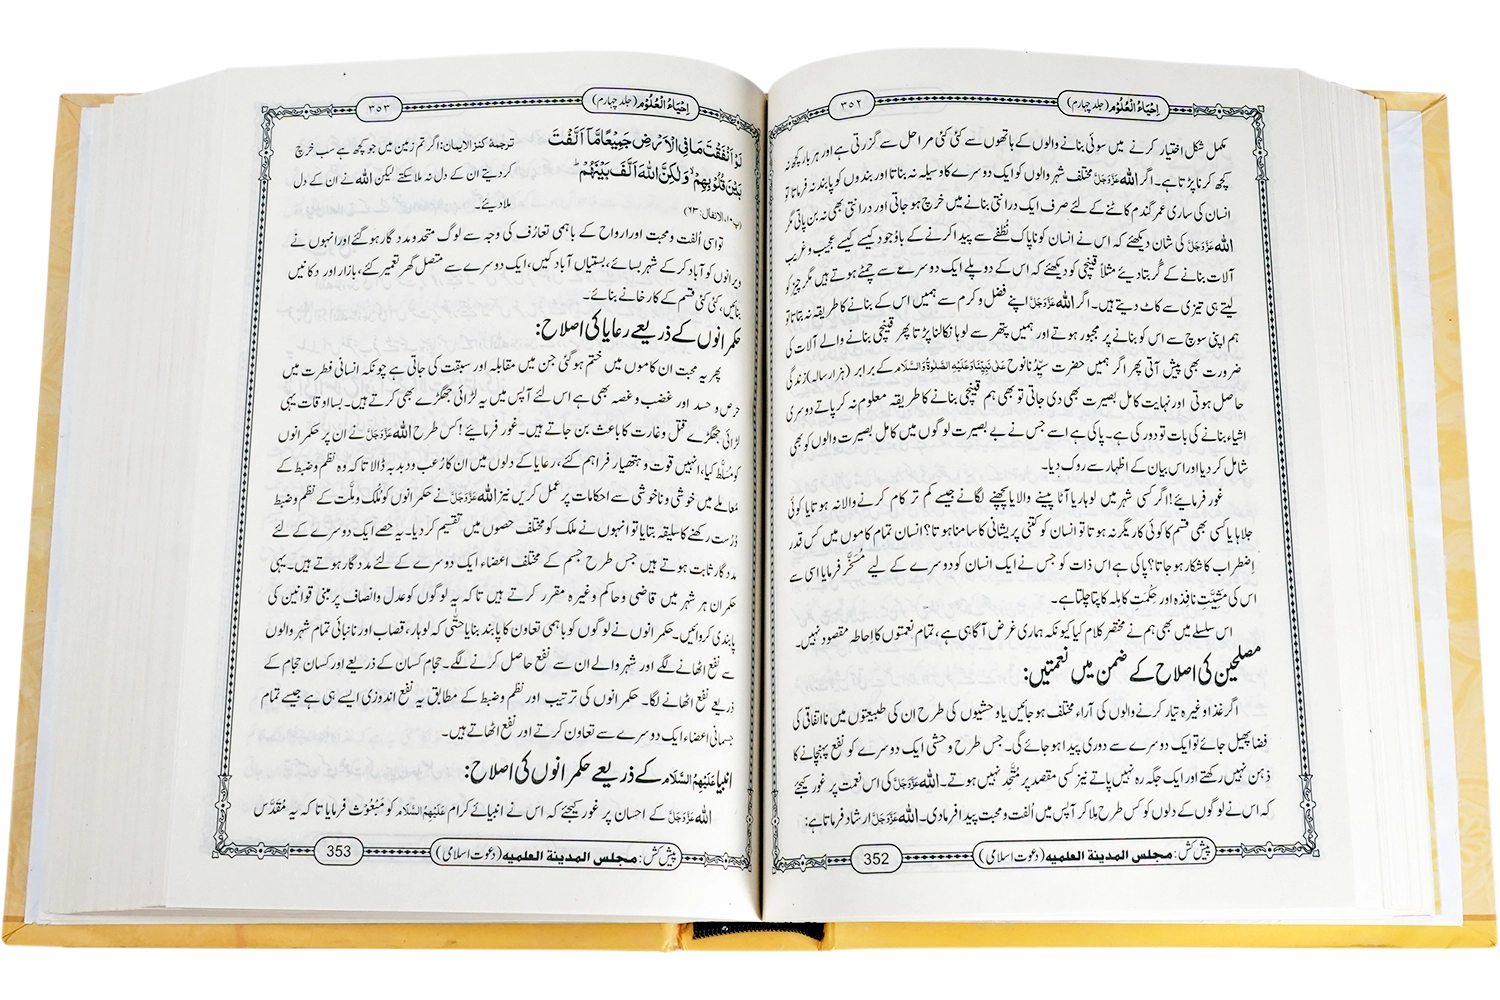 اِحْيَاءُ الْعُلُوْم (جلد چہارم)
٣٥٢
مکمل شکل اختیار کرنے میں سوئی بنانے والوں کے ہاتھوں سے کئی کئی مراحل سے گزرتی ہے اور ہر بار کچھ نہ
کچھ کرنا پڑتا ہے۔ اگر اللہ عَزَّوَجَلَّ مختلف شہر والوں کو ایک دوسرے کا وسیلہ نہ بناتا اور بندوں کو پابند نہ فرماتا تو
انسان کی ساری عمر گندم کاٹنے کے لئے صرف ایک درانتی بنانے میں خرچ ہو جاتی اور درانتی بھی نہ بن پاتی مگر
اللہ عَزَّوَجَلَّ کی شان دیکھئے کہ اس نے انسان کو ناپاک نُطْفے سے پیدا کرنے کے باوُجود کیسے کیسے عجیب و غریب
آلات بنانے کے گُر بتا دیئے مثلاً قینچی کو دیکھئے کہ اس کے دو پلے ایک دوسرے سے چمٹے ہوتے ہیں مگر چیز کو
لیتے ہی تیزی سے کاٹ دیتے ہیں۔ اگر اللہ عَزَّوَجَلَّ اپنے فضل و کرم سے ہمیں اس کے بنانے کا طریقہ نہ بتاتا تو
ہم اپنی سوچ سے اس کو بنانے پر مجبور ہوتے اور ہمیں پتھر سے لوہا نکالنا پڑتا پھر قینچی بنانے والے آلات کی
ضرورت بھی پیش آتی پھر اگر ہمیں حضرت سیِّدُنا نوح عَلٰی نَبِیِّنَا وَعَلَیْہِ الصَّلٰوۃُ وَالسَّلَام کے برابر (ہزار سالہ) زندگی
حاصل ہوتی اور نہایت کامل بصیرت بھی دی جاتی تو بھی ہم قینچی بنانے کا طریقہ معلوم نہ کر پاتے دوسری
اشیاء بنانے کی بات تو دور کی ہے۔ پاکی ہے اسے جس نے بے بصیرت لوگوں میں کامل بصیرت والوں کو بھی
شامل کر دیا اور اس بیان کے اظہار سے روک دیا۔
غور فرمایئے! اگر کسی شہر میں لوہار یا آٹا پیسنے والا یا پچھنے لگانے جیسے کم تر کام کرنے والا نہ ہوتا یا کوئی
جلاہا یا کسی بھی قسم کا کوئی کاریگر نہ ہوتا تو انسان کو کتنی پریشانی کا سامنا ہوتا؟ انسان تمام کاموں میں کس قدر
اِضطراب کا شکار ہو جاتا؟ پاکی ہے اس ذات کو جس نے ایک انسان کو دوسرے کے لیے مُسَخَّر فرمایا اسی سے
اس کی مَشِیَّت نافِذہ اور حِکْمَتِ کاملہ کا پتا چلتا ہے۔
اس سلسلے میں بھی ہم نے مختصر کلام کیا کیونکہ ہماری غرض آگاہی ہے، تمام نعمتوں کا اِحاطہ مقصود نہیں۔
مصلحین کی اصلاح کے ضمن میں نعمتیں:
اگر غذا وغیرہ تیار کرنے والوں کی آراء مختلف ہو جائیں یا وحشیوں کی طرح ان کی طبیعتوں میں نااتفاقی کی
فضا پھیل جائے تو ایک دوسرے سے دوری پیدا ہو جائے گی۔ جس طرح وحشی ایک دوسرے کو نفع پہنچانے کا
ذہن نہیں رکھتے اور ایک جگہ رہ نہیں پاتے نیز کسی مقصد پر مُتَّحِد نہیں ہوتے۔ اللہ عَزَّوَجَلَّ کی اس نعمت پر غور کیجئے
کہ اس نے لوگوں کے دلوں کو کس طرح ملا کر آپس میں اُلفت و محبت پیدا فرما دی۔ اللہ عَزَّوَجَلَّ ارشاد فرماتا ہے:
پیش کش: مجلس المدینۃ العلمیہ (دعوت اسلامی)
352
اِحْيَاءُ الْعُلُوْم (جلد چہارم)
٣٥٣
لَوْ اَنْفَقْتَ مَا فِی الْاَرْضِ جَمِیْعًا مَّاۤ اَلَّفْتَ ترجمۂ کنز الایمان: اگر تم زمین میں جو کچھ ہے سب خرچ
بَیْنَ قُلُوْبِهِمْ وَلٰكِنَّ اللّٰهَ اَلَّفَ بَیْنَهُمْ ؕ کر دیتے ان کے دل نہ ملا سکتے لیکن اللہ نے ان کے دل
(پ١٠، الانفال: ٦٣) ملا دیئے۔
تو اسی اُلفت و محبت اور ارواح کے باہمی تعارُف کی وجہ سے لوگ متحد و مدد گار ہو گئے اور انہوں نے
ویرانوں کو آباد کر کے شہر بسائے، بستیاں آباد کیں، ایک دوسرے سے متصل گھر تعمیر کئے، بازار اور دکانیں
بنائیں، کئی کئی قسم کے کارخانے بنائے۔
حکمرانوں کے ذریعے رعایا کی اصلاح:
پھر یہ محبت ان کاموں میں ختم ہو گئی جن میں مقابلہ اور سبقت کی جاتی ہے چونکہ انسانی فطرت میں
حرص و حسد اور غضب و غصہ بھی ہے اس لئے آپس میں یہ لڑائی جھگڑے بھی کرتے ہیں۔ بسا اوقات یہی
لڑائی جھگڑے قتل و غارت کا باعث بن جاتے ہیں۔ غور فرمائیے! کس طرح اللہ عَزَّوَجَلَّ نے ان پر حکمرانوں
کو مُسَلَّط کیا، انہیں قوت و ہتھیار فراہم کئے، رعایا کے دلوں میں ان کا رُعب و دبدبہ ڈالا تاکہ وہ نظم و ضبط کے
مُعاملے میں خوشی و ناخوشی سے احکامات پر عمل کریں نیز اللہ عَزَّوَجَلَّ نے حکمرانوں کو مُلْک و ملّت کے نظم و ضبط
دُرُست رکھنے کا سلیقہ بتایا تو انہوں نے ملک کو مختلف حصوں میں تقسیم کر دیا۔ یہ حصے ایک دوسرے کے لئے
مددگار ثابت ہوتے ہیں جس طرح جسم کے مختلف اعضاء ایک دوسرے کے لئے مددگار ہوتے ہیں۔ یہی
حکمران ہر شہر میں قاضی و حاکم وغیرہ مقرر کرتے ہیں تاکہ یہ لوگوں کو عدل و انصاف پر مبنی قوانین کی
پابندی کروائیں۔ حکمرانوں نے لوگوں کو باہمی تعاون کا پابند بنایا حتّٰی کہ لوہار، قصاب اور نانبائی تمام شہر والوں
سے نفع اٹھانے لگے اور شہر والے ان سے نفع حاصل کرنے لگے۔ حجام کسان کے ذریعے اور کسان حجام کے
ذریعے نفع اٹھانے لگا۔ حکمرانوں کی ترتیب اور نظم و ضبط کے مطابق یہ نفع اندوزی ایسے ہی ہے جیسے تمام
جسمانی اعضاء ایک دوسرے سے تعاون کرتے اور نفع اٹھاتے ہیں۔
انبیا عَلَیْہِمُ السَّلَام کے ذریعے حکمرانوں کی اصلاح:
اللہ عَزَّوَجَلَّ کے احسان پر غور کیجئے کہ اس نے انبیائے کرام عَلَیْہِمُ السَّلَام کو مَبْعُوْث فرمایا تاکہ یہ مُقَدَّس
پیش کش: مجلس المدینۃ العلمیہ (دعوت اسلامی)
353